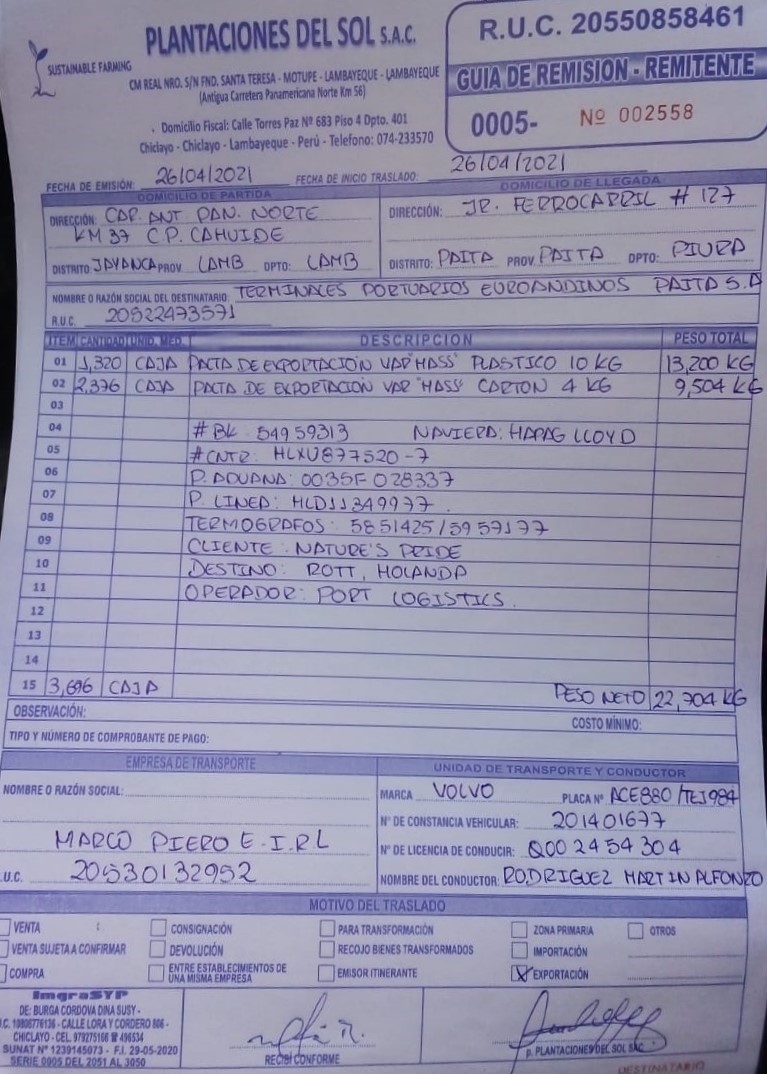 PLANTACIONES DEL SOL S.A.C.
SUSTAINABLE FARMING
CM REAL NRO. S/N FND. SANTA TERESA - MOTUPE - LAMBAYEQUE - LAMBAYEQUE
(Antigua Carretera Panamericana Norte Km 56)
Domicilio Fiscal: Calle Torres Paz Nº 683 Piso 4 Dpto. 401
Chiclayo - Chiclayo - Lambayeque - Perú - Telefono: 074-233570
R.U.C. 20550858461
GUIA DE REMISION - REMITENTE
0005- Nº 002558
FECHA DE EMISIÓN: 26/04/2021 FECHA DE INICIO TRASLADO: 26/04/2021
DOMICILIO DE PARTIDA
DIRECCIÓN: CAR. ANT. PAN. NORTE
KM 37 C.P. CAHUIDE
DISTRITO JAYANCA PROV LAMB DPTO: LAMB
DOMICILIO DE LLEGADA
DIRECCIÓN: JR. FERROCARRIL # 127
DISTRITO: PAITA PROV. PAITA DPTO: PIURA
NOMBRE O RAZÓN SOCIAL DEL DESTINATARIO: TERMINALES PORTUARIOS EUROANDINOS PAITA S.A
R.U.C. 20522473571
ITEM CANTIDAD UNID. MED. DESCRIPCION PESO TOTAL
01 1,320 CAJA PALTA DE EXPORTACIÓN VAR "HASS" PLASTICO 10 KG 13,200 KG
02 2,376 CAJA PALTA DE EXPORTACION VAR "HASS" CARTON 4 KG 9,504 KG
03
04 # BK 54959313 NAVIERA: HAPAG LLOYD
05 # CNTR: HLXU877520-7
06 P. ADUANA: 0035F028337
07 P. LINEA: HLD11349977
08 TERMOGRAFOS: 5851425/5959177
09 CLIENTE: NATURE'S PRIDE
10 DESTINO: ROTT, HOLANDA
11 OPERADOR: PORT LOGISTICS.
12
13
14
15 3,696 CAJA PESO NETO 22,704 KG
OBSERVACIÓN:
COSTO MÍNIMO:
TIPO Y NÚMERO DE COMPROBANTE DE PAGO:
EMPRESA DE TRANSPORTE
NOMBRE O RAZÓN SOCIAL:
MARCO PIERO E.I.R.L
U.C. 20530132952
UNIDAD DE TRANSPORTE Y CONDUCTOR
MARCA VOLVO PLACA Nº ACE880/TEJ984
Nº DE CONSTANCIA VEHICULAR: 201401677
Nº DE LICENCIA DE CONDUCIR: Q002454304
NOMBRE DEL CONDUCTOR: RODRIGUEZ MARTIN ALFONZO
MOTIVO DEL TRASLADO
VENTA
CONSIGNACIÓN
PARA TRANSFORMACIÓN
ZONA PRIMARIA
OTROS
VENTA SUJETA A CONFIRMAR
DEVOLUCIÓN
RECOJO BIENES TRANSFORMADOS
IMPORTACIÓN
COMPRA
ENTRE ESTABLECIMIENTOS DE
UNA MISMA EMPRESA
EMISOR ITINERANTE
X EXPORTACIÓN
ImgraSYP
DE: BURGA CORDOVA DINA SUSY -
.C. 10806776136 - CALLE LORA Y CORDERO 806 -
CHICLAYO - CEL. 979275166 ☎ 496534
SUNAT Nº 1239145073 - F.I. 29-05-2020
SERIE 0005 DEL 2051 AL 3050
RECIBÍ CONFORME
p. PLANTACIONES DEL SOL SAC
DESTINATARIO